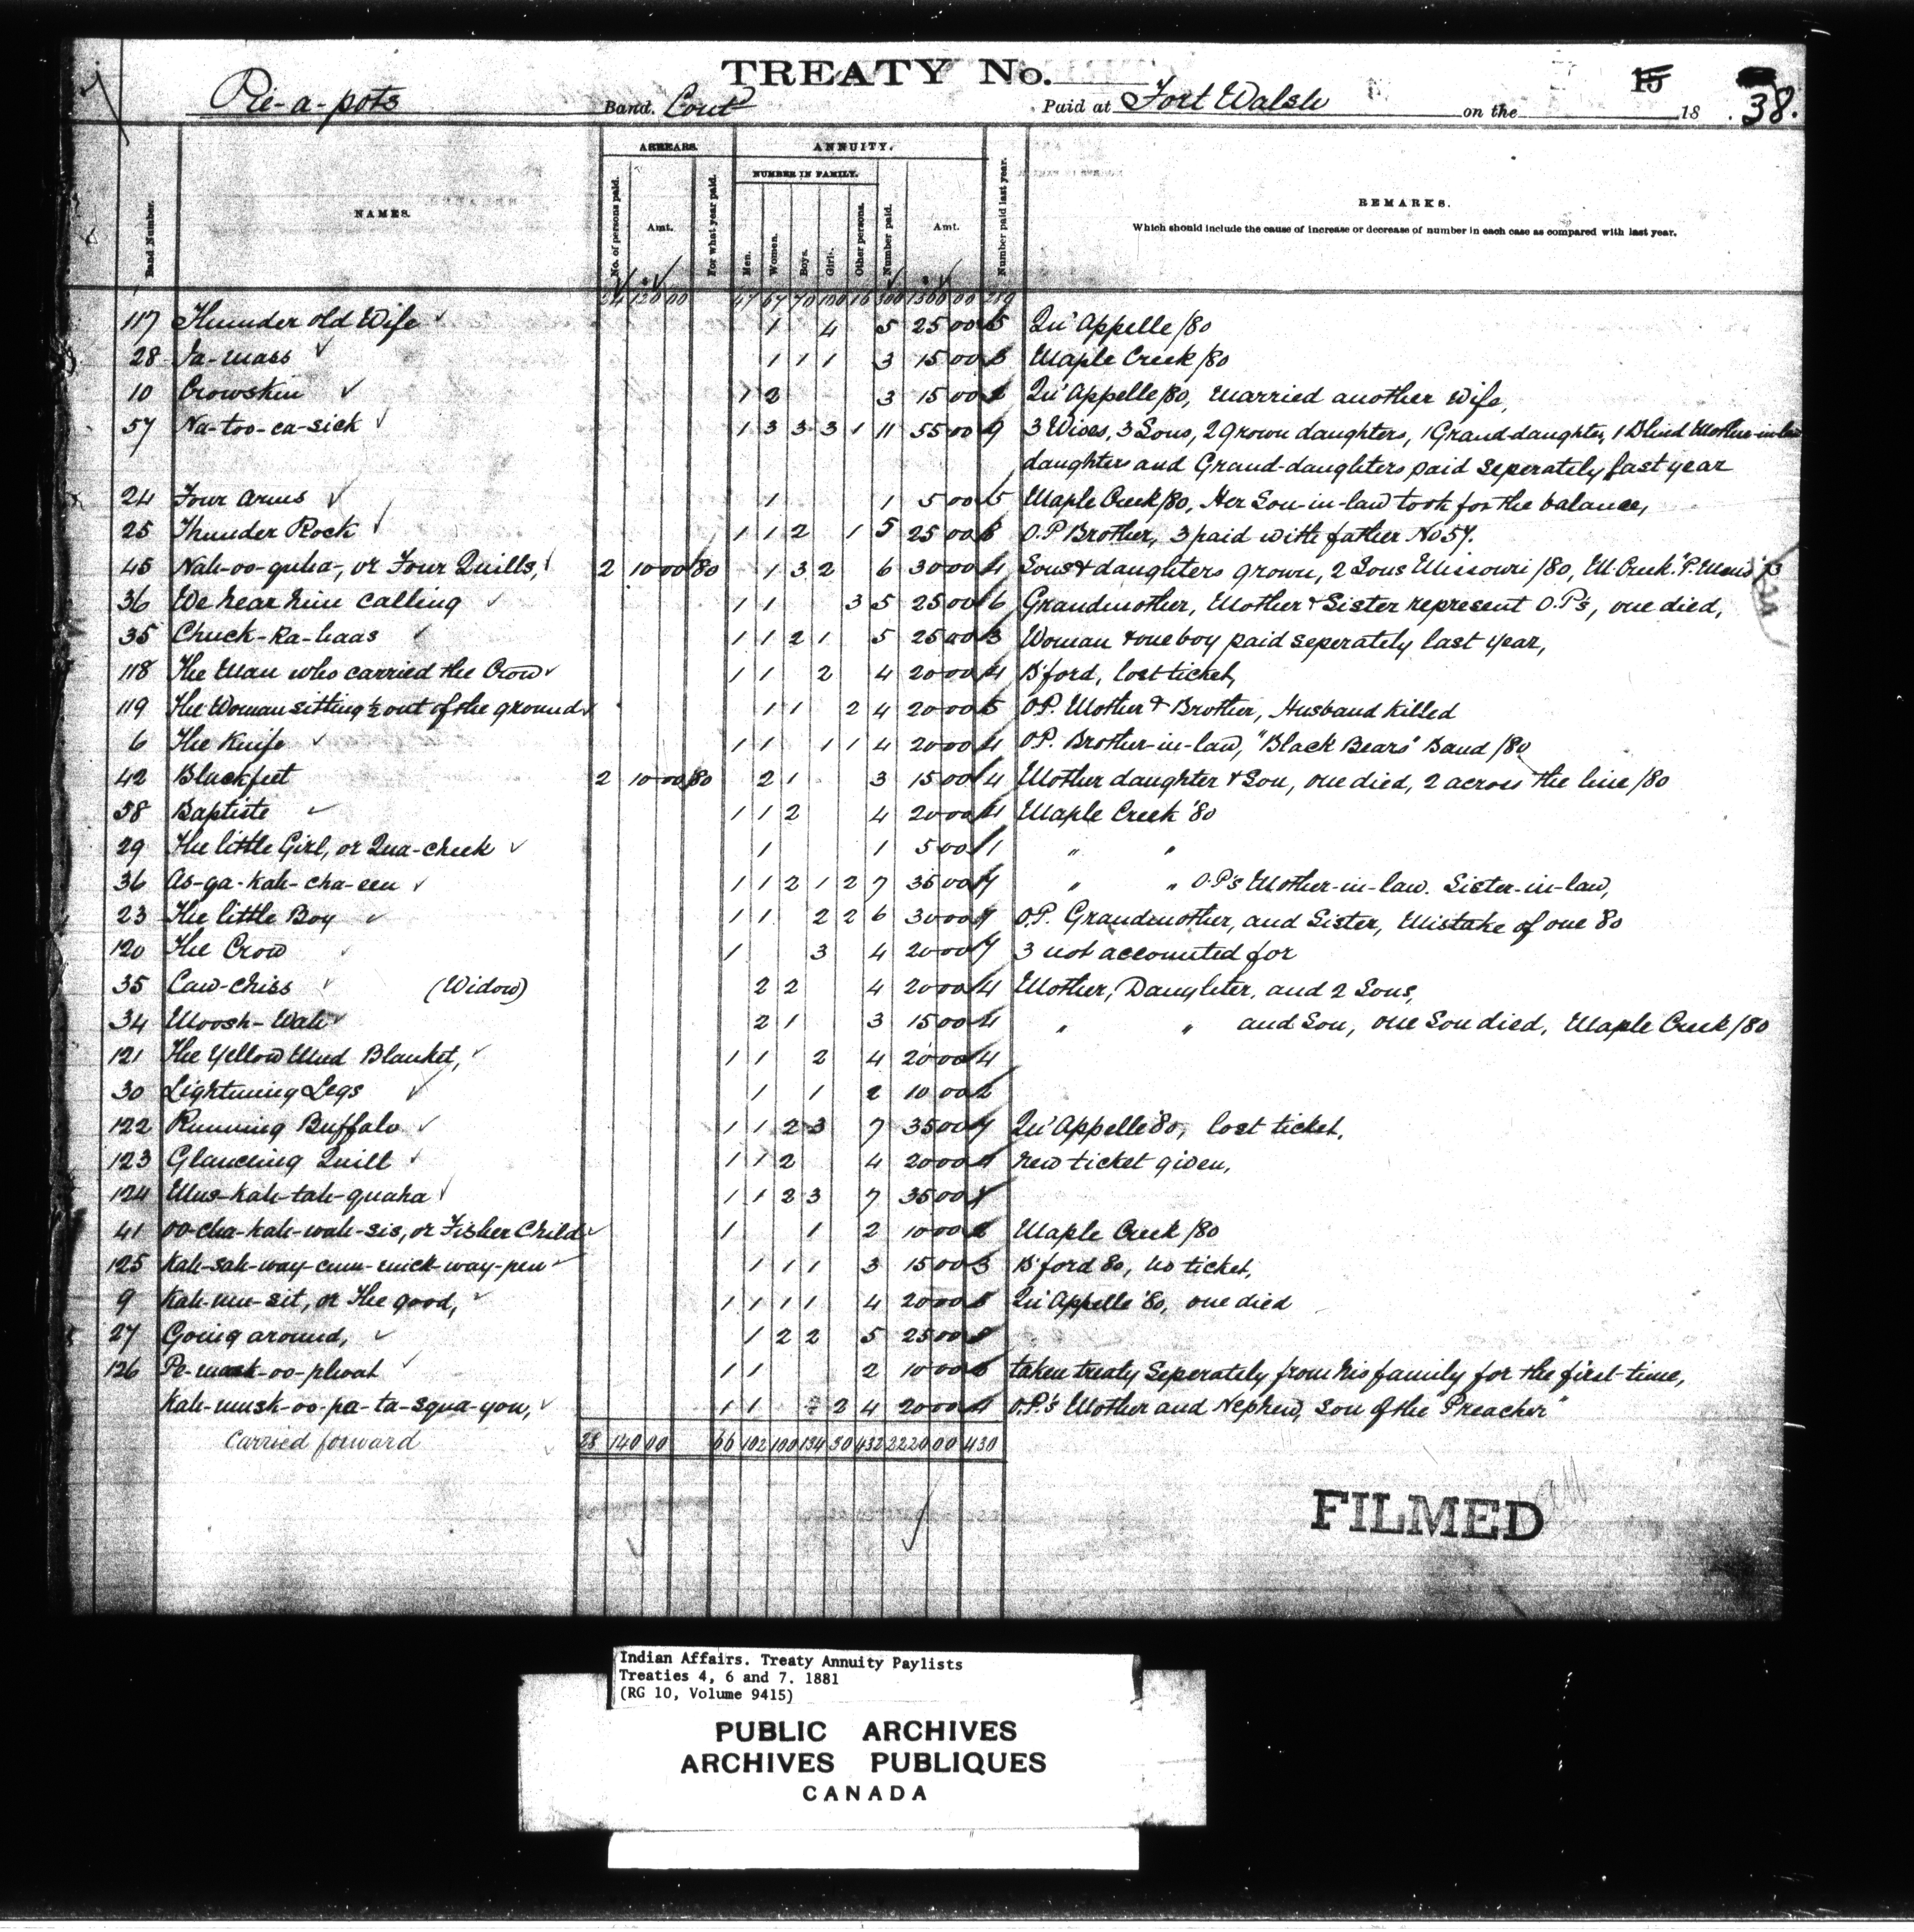 TREATY No.
Pie-a-pots Band. Cont'd Paid at Fort Walsh on the 18 15 38.
ARREARS. ANNUITY.
NUMBER IN FAMILY.
Band Number. NAMES. No. of persons paid. Amt. For what year paid. Men. Women. Boys. Girls. Other persons. Number paid. Amt. Number paid last year. REMARKS.
Which should include the cause of increase or decrease of number in each case as compared with last year.
24 120 00 47 67 70 100 16 300 1500 00 289
117 Thunder old Wife 1 4 5 25 00 5 Qu'Appelle /80
28 Ja-mass 1 1 1 3 15 00 3 Maple Creek /80
10 Crowskin 1 2 3 15 00 2 Qu'Appelle /80, married another wife,
57 Na-too-ca-sick 1 3 3 3 1 11 55 00 9 3 Wives, 3 Sons, 2 grown daughters, 1 Grand-daughter, 1 Blind Mother-in-law
daughters and Grand-daughters paid seperately last year
24 Four arms 1 1 5 00 5 Maple Creek /80, Her Son-in-law took for the balance,
25 Thunder Rock 1 1 2 1 5 25 00 8 O.P Brother, 3 paid with father No 57.
45 Nah-oo-quha-, or Four Quills, 2 10 00 /80 1 3 2 6 30 00 4 Sons & daughters grown, 2 Sons Missouri /80, M. Creek.
36 We hear him calling 1 1 3 5 25 00 6 Grandmother, Mother & Sister represent O.P's, one died,
35 Chuck-Ka-haas 1 1 2 1 5 25 00 3 Woman & one boy paid seperately last year,
118 The Man who carried the Crow 1 1 2 4 20 00 4 B'ford, lost ticket,
119 The Woman sitting ½ out of the ground 1 1 2 4 20 00 5 O.P. Mother & Brother, Husband killed
6 The Knife 1 1 1 1 4 20 00 4 O.P. Brother-in-law, "Black Bears" Band /80
42 Blackfeet 2 10 00 /80 2 1 3 15 00 4 Mother daughter & Son, one died, 2 across the line /80
58 Baptiste 1 1 2 4 20 00 4 Maple Creek '80
29 The little Girl, or Qua-cheek 1 1 5 00 1 " "
36 As-ga-kah-cha-een 1 1 2 1 2 7 35 00 7 " " O.P's Mother-in-law. Sister-in-law,
23 The little Boy 1 1 2 2 6 30 00 7 O.P. Grandmother, and Sister, Mistake of one 80
120 The Crow 1 3 4 20 00 7 3 not accounted for
35 Caw-chiss (Widow) 2 2 4 20 00 4 Mother, Daughter, and 2 Sons,
34 Moosh-Wah 2 1 3 15 00 4 " " and Son, one Son died, Maple Creek /80
121 The Yellow Mud Blanket, 1 1 2 4 20 00 4
30 Lightning Legs 1 1 2 10 00 2
122 Running Buffalo 1 1 2 3 7 35 00 7 Qu'Appelle '80, lost ticket,
123 Glancing Quill 1 1 2 4 20 00 4 new ticket given,
124 Mus-kah-tah-quaha 1 1 2 3 7 35 00
41 oo-cha-kah-wah-sis, or Fisher Child 1 1 2 10 00 2 Maple Creek /80
125 Kah-sah-way-cum-mick-way-pew 1 1 1 3 15 00 3 B'ford 80, no ticket,
9 Kah-me-sit, or The good, 1 1 1 1 4 20 00 5 Qu'Appelle '80, one died
27 Going around, 1 2 2 5 25 00 8
126 Pe-mask-oo-plwat 1 1 2 10 00 6 taken treaty seperately from his family for the first time,
Kah-mush-oo-pa-ta-squa-you, 1 1 2 4 20 00 4 O.P.'s Mother and Nephew, son of the "Preacher"
Carried forward 28 140 00 66 102 100 134 30 432 2220 00 430
FILMED
Indian Affairs. Treaty Annuity Paylists
Treaties 4, 6 and 7. 1881
(RG 10, Volume 9415)
PUBLIC ARCHIVES
ARCHIVES PUBLIQUES
CANADA